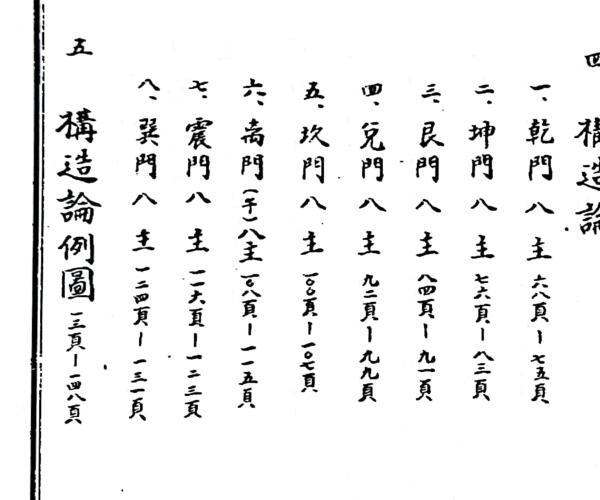 四 構造論
一、乾門八主 六八頁－七五頁
二、坤門八主 七六頁－八三頁
三、艮門八主 八四頁－九一頁
四、兌門八主 九二頁－九九頁
五、坎門八主 一〇〇頁－一〇七頁
六、离門(午)八主 一〇八頁－一一五頁
七、震門八主 一一六頁－一二三頁
八、巽門八主 一二四頁－一三一頁
五 構造論例圖 一三頁－一四八頁